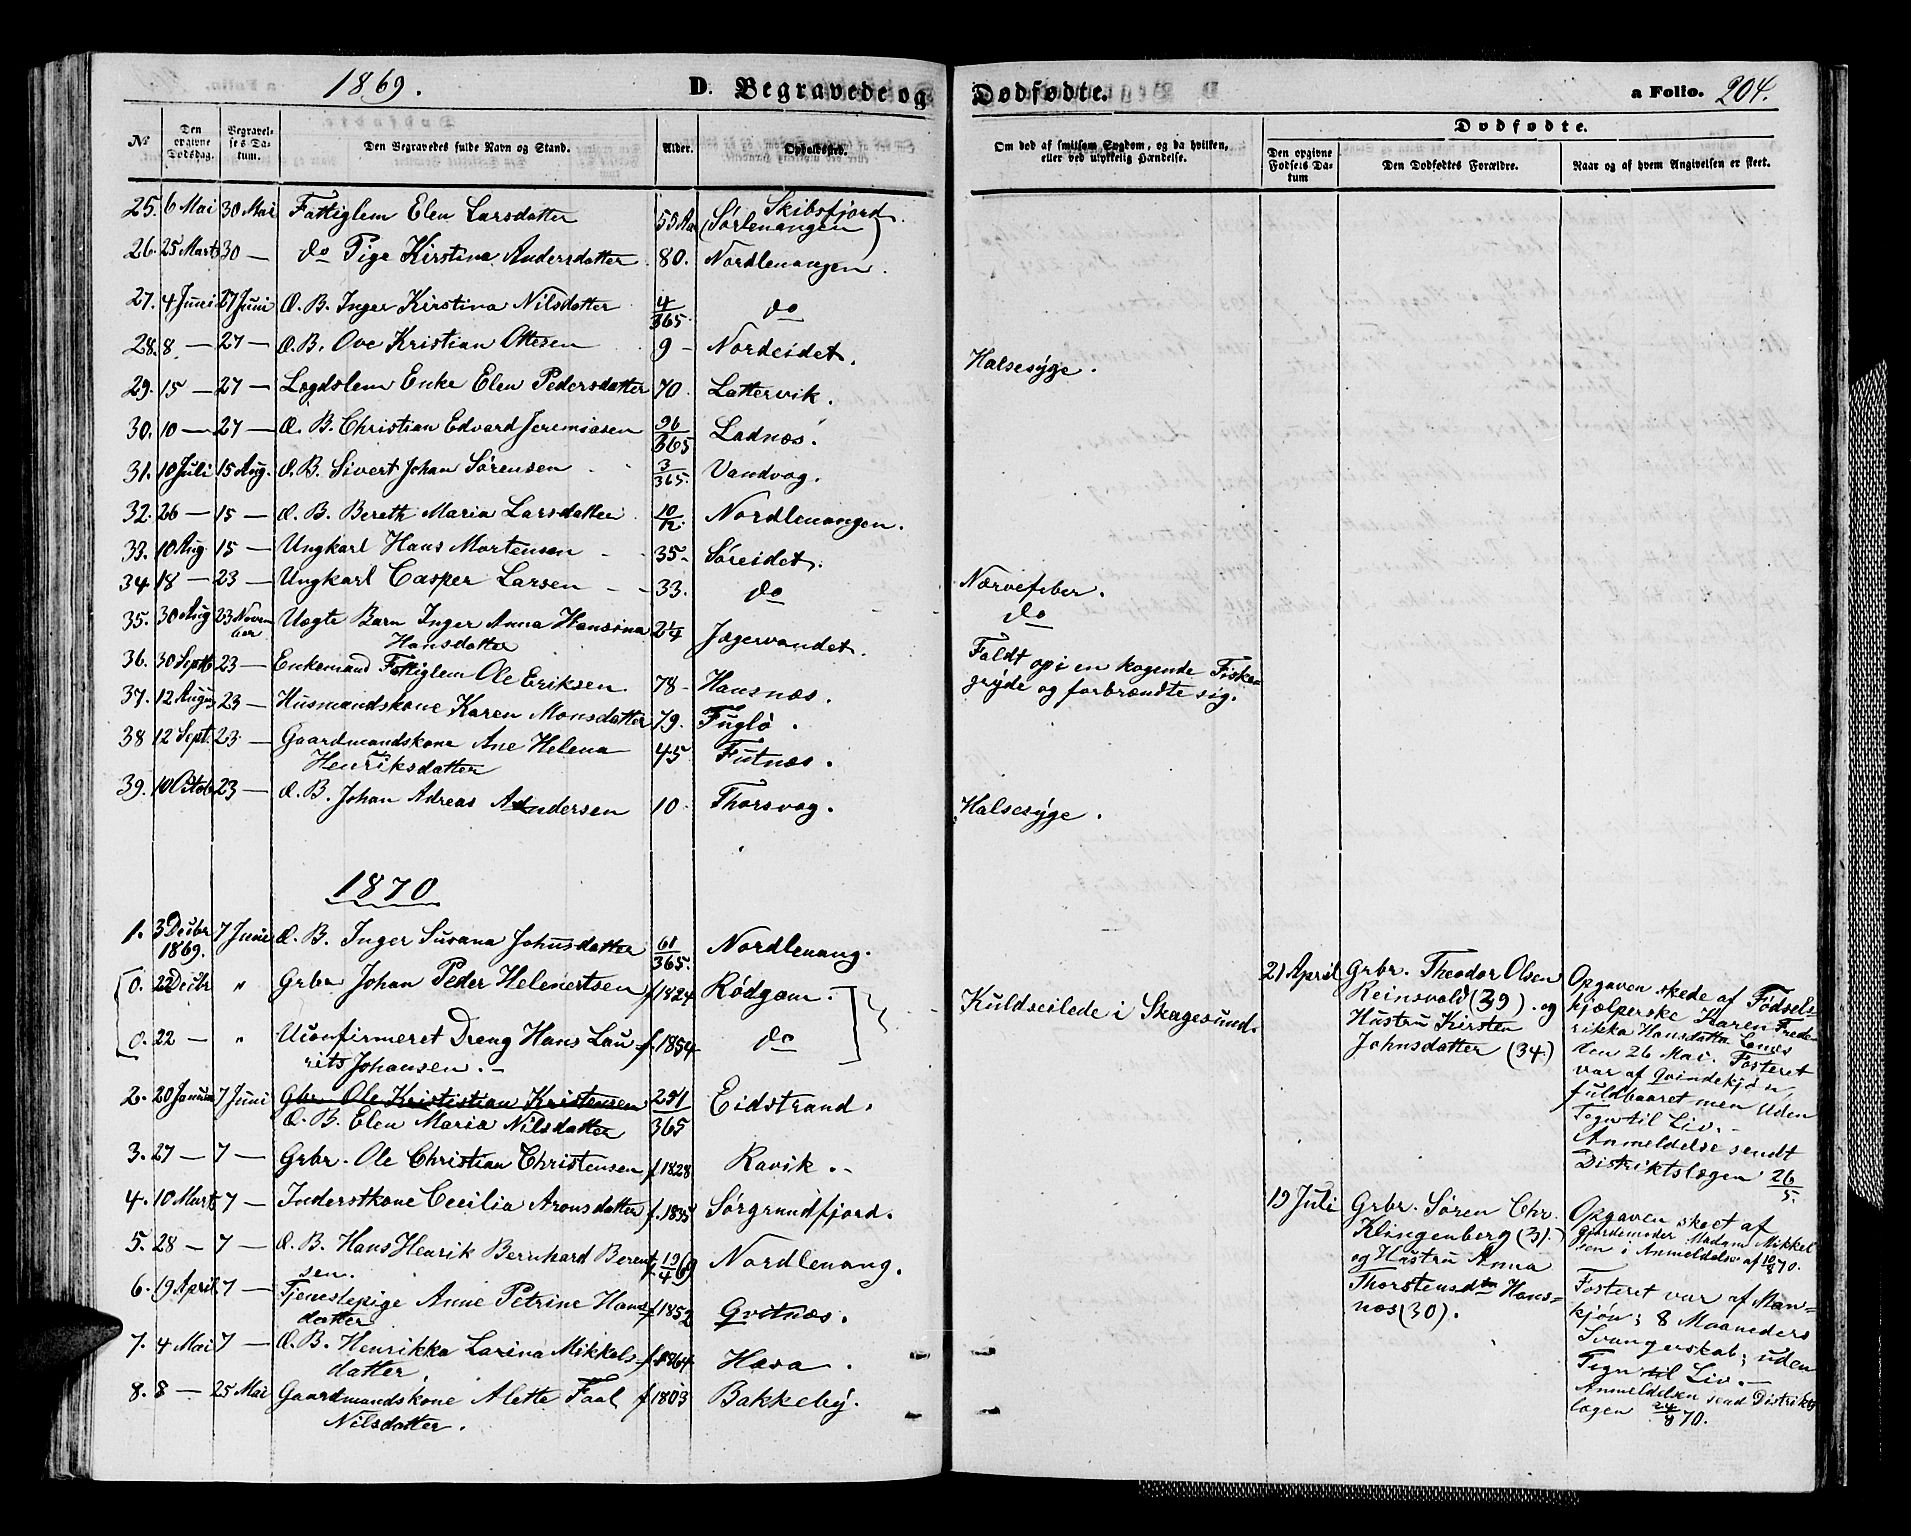 1869. D. Begravede og Dødfødte. a Folio. 204.
Dødfødte.
No Den opgivne Dødsdag. Begravelses Datum. Den Begravedes fulde Navn og Stand. Alder. Opholdssted. Om død af smitsom Sygdom, og da hvilken, eller ved ulykkelig Hændelse. Den opgivne Fødsels Datum Den Dødfødtes Forældre. Naar og af hvem Angivelsen er skeet.
25. 6 Mai 30 Mai Fattiglem Elen Larsdatter 55 Aar Skibsfjord.
(Sørlenangen)
26. 25 Marts 30 — do Pige Kirstina Andersdatter 80. Nordlenangen.
27. 4 Juni 27 Juni Æ. B. Inger Kirstina Nilsdatter 4/365 do
28. 8 — 27 — Æ. B. Ove Kristian Ottesen 9 - Nordeidet. Halsesyge.
29. 15 — 27 — Lægdslem Enke Elen Pedersdatter 70. Lattervik.
30. 10 — 27 — Æ. B. Christian Edvard Jeremiasen 96/365 Ladnæs.
31. 10 Juli 15 Aug. Æ. B. Sivert Johan Sørensen 3/365. Vandvog.
32. 26 — 15 — Æ. B. Bereth Maria Larsdatter 10/12. Nordlenangen.
33. 10 Aug. 15 — Ungkarl Hans Mortensen 35- Søreidet.
34. 18 — 23 — Ungkarl Casper Larsen 33. do Nærvefeber.
do
35. 30 Aug 23 November Uægte Barn Inger Anna Hansina 2 1/4 Jægervandet.
Hansdatter
Faldt op i en kogende Fiske=
gryde og forbrændte sig.
36. 30 Septb 23 — Enkemand Fattiglem Ole Eriksen. 78 - Hansnæs.
37. 12 August 23 — Husmandskone Karen Monsdatter 79. Fuglø.
38 12 Sept. 23 — Gaardmandskone Ane Helena 45 Futnæs.
Henriksdatter
39. 10 Octob 23 — Æ. B. Johan Adreas Andersen 10. Thorsvog. Halsesyge.
1870
1. 3 Decbr 1869. 7 Juni Æ. B. Inger Susana Johnsdatter 61/365. Nordlenang.
0. 22 Decbr " Grbr Johan Peder Helenertsen f 1824 Rødgam.
Kuldseilede i Skagesund.
0. 22 — " Uconfirmeret Dreng Hans Lau= f. 1854 do
rits Johansen. —
2. 20 Januar 7 Juni Gbr Ole Krististian Kristensen 251/365 Eidstrand.
Æ. B. Elen Maria Nilsdatter
3. 27 — 7 — Grbr. Ole Christian Christensen f. 1828 Ravik. -
4. 10 Marts 7 — Inderstkone Cecilia Aronsdatter f. 1835 Sørgrundfjord.
5. 28 — 7 — Æ. B. Hans Henrik Bernhard Berent f. 19/4 69 Nordlenang.
sen.
6. 19 April 7 — Tjenestepige Anne Petrine Hans f 1852 Gvitnæs.
datter
7. 4 Mai 7 — Æ. B. Henrikka Larina Mikkels= f. 1864 Hæsa.
datter.
8. 8 — 25 Mai Gaardmandskone Alette Faal f 1803 Bakkeby.
Nilsdatter.
21 April Grbr. Theodor Olsen
Reinsvold (39). og
Hustru Kirsten
Johnsdatter (34)
Opgaven skede af Fødsels=
hjælperske Karen Frede
rikka Hansdatter Lenes
den 26 Mai. Fosteret
var af Qvindekjøn,
fuldbaaret men uden
Tegn til Liv. -
Anmeldelse sendt
Distriktslægen 26/5.
19 Juli Grbr. Søren Chr.
Klingenberg (31).
og Hustru Anna
Thorstensdtr Hans=
næs (30).
Opgaven skeet af
Gjordemoder Madam Mikkel
sen i Anmeldelse af 10/8 70.
Fosteret var af Man=
kjøn; 8 Maaneders
Svangerskab; uden
Tegn til Liv. —
Anmeldelsen send Distrikts
lægen 24/8 70.